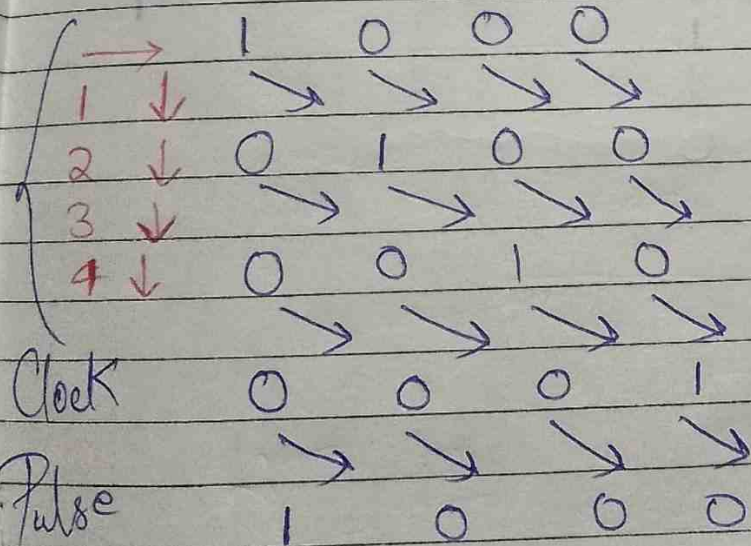 → 1 0 0 0
1 ↓ ↘ ↘ ↘ ↘
2 ↓ 0 1 0 0
3 ↓ ↘ ↘ ↘ ↘
4 ↓ 0 0 1 0
↘ ↘ ↘ ↘
Clock 0 0 0 1
↘ ↘ ↘ ↘
Pulse 1 0 0 0